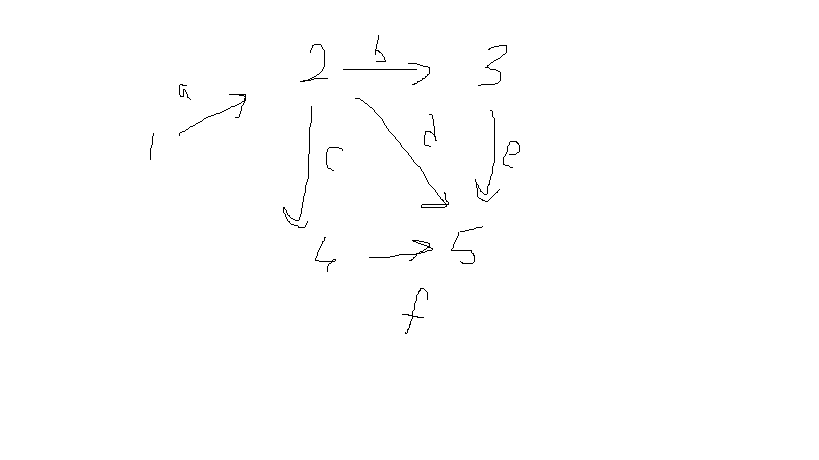 b
2 3
a
1
d
c e
4 5
f